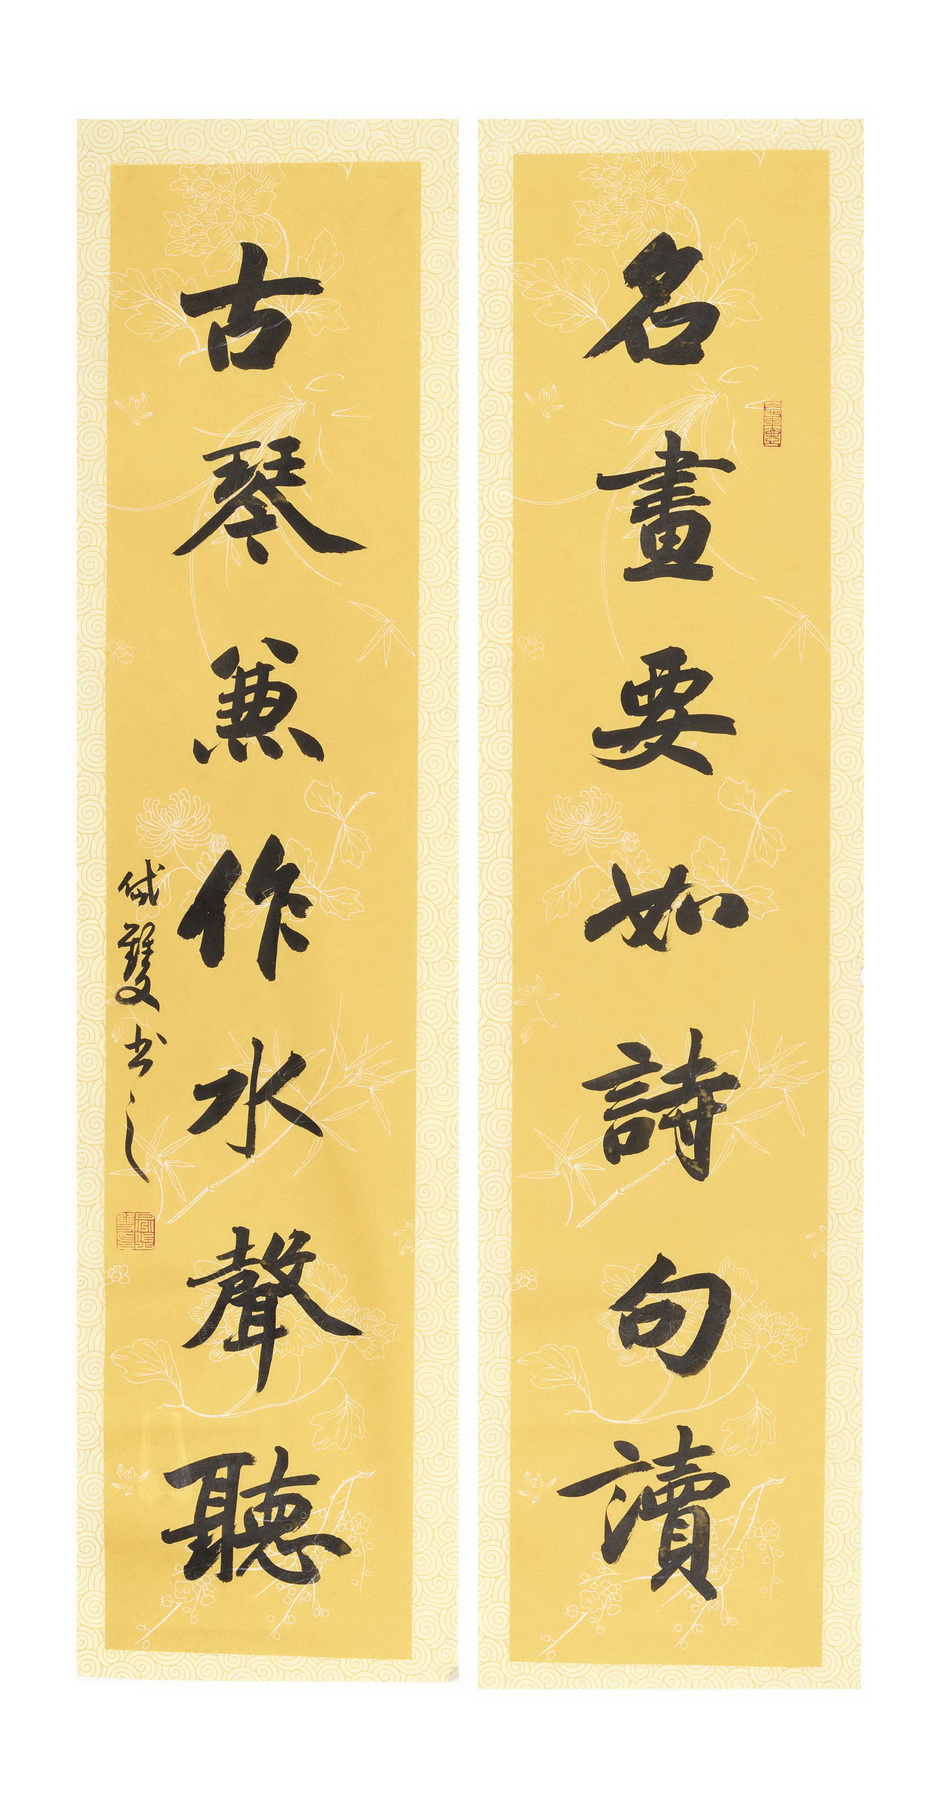 名畫要如詩句讀
古琴兼作水聲聽
雙书之